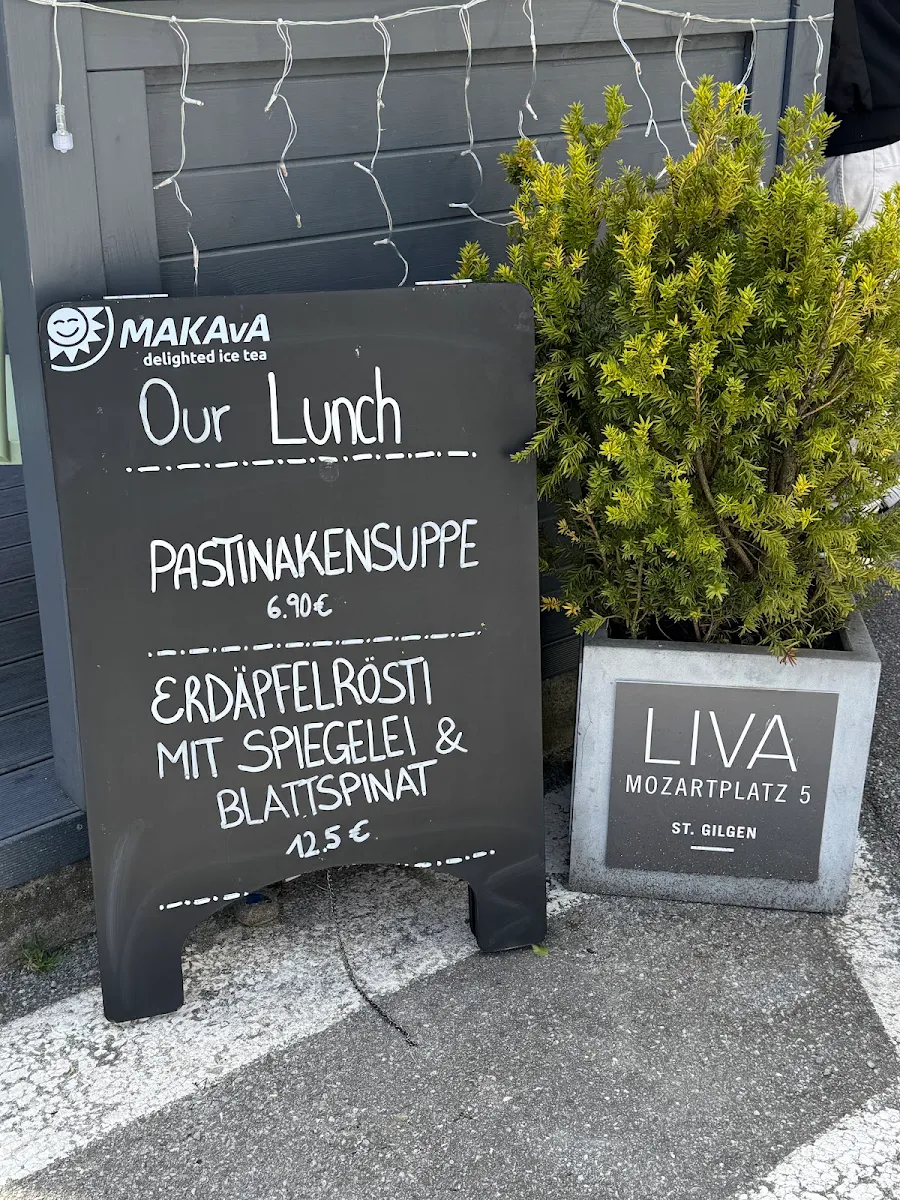 MAKAvA
delighted ice tea
Our Lunch
PASTINAKENSUPPE
6.90€
ERDÄPFELRÖSTI
MIT SPIEGELEI &
BLATTSPINAT
12.5 €
LIVA
MOZARTPLATZ 5
ST. GILGEN